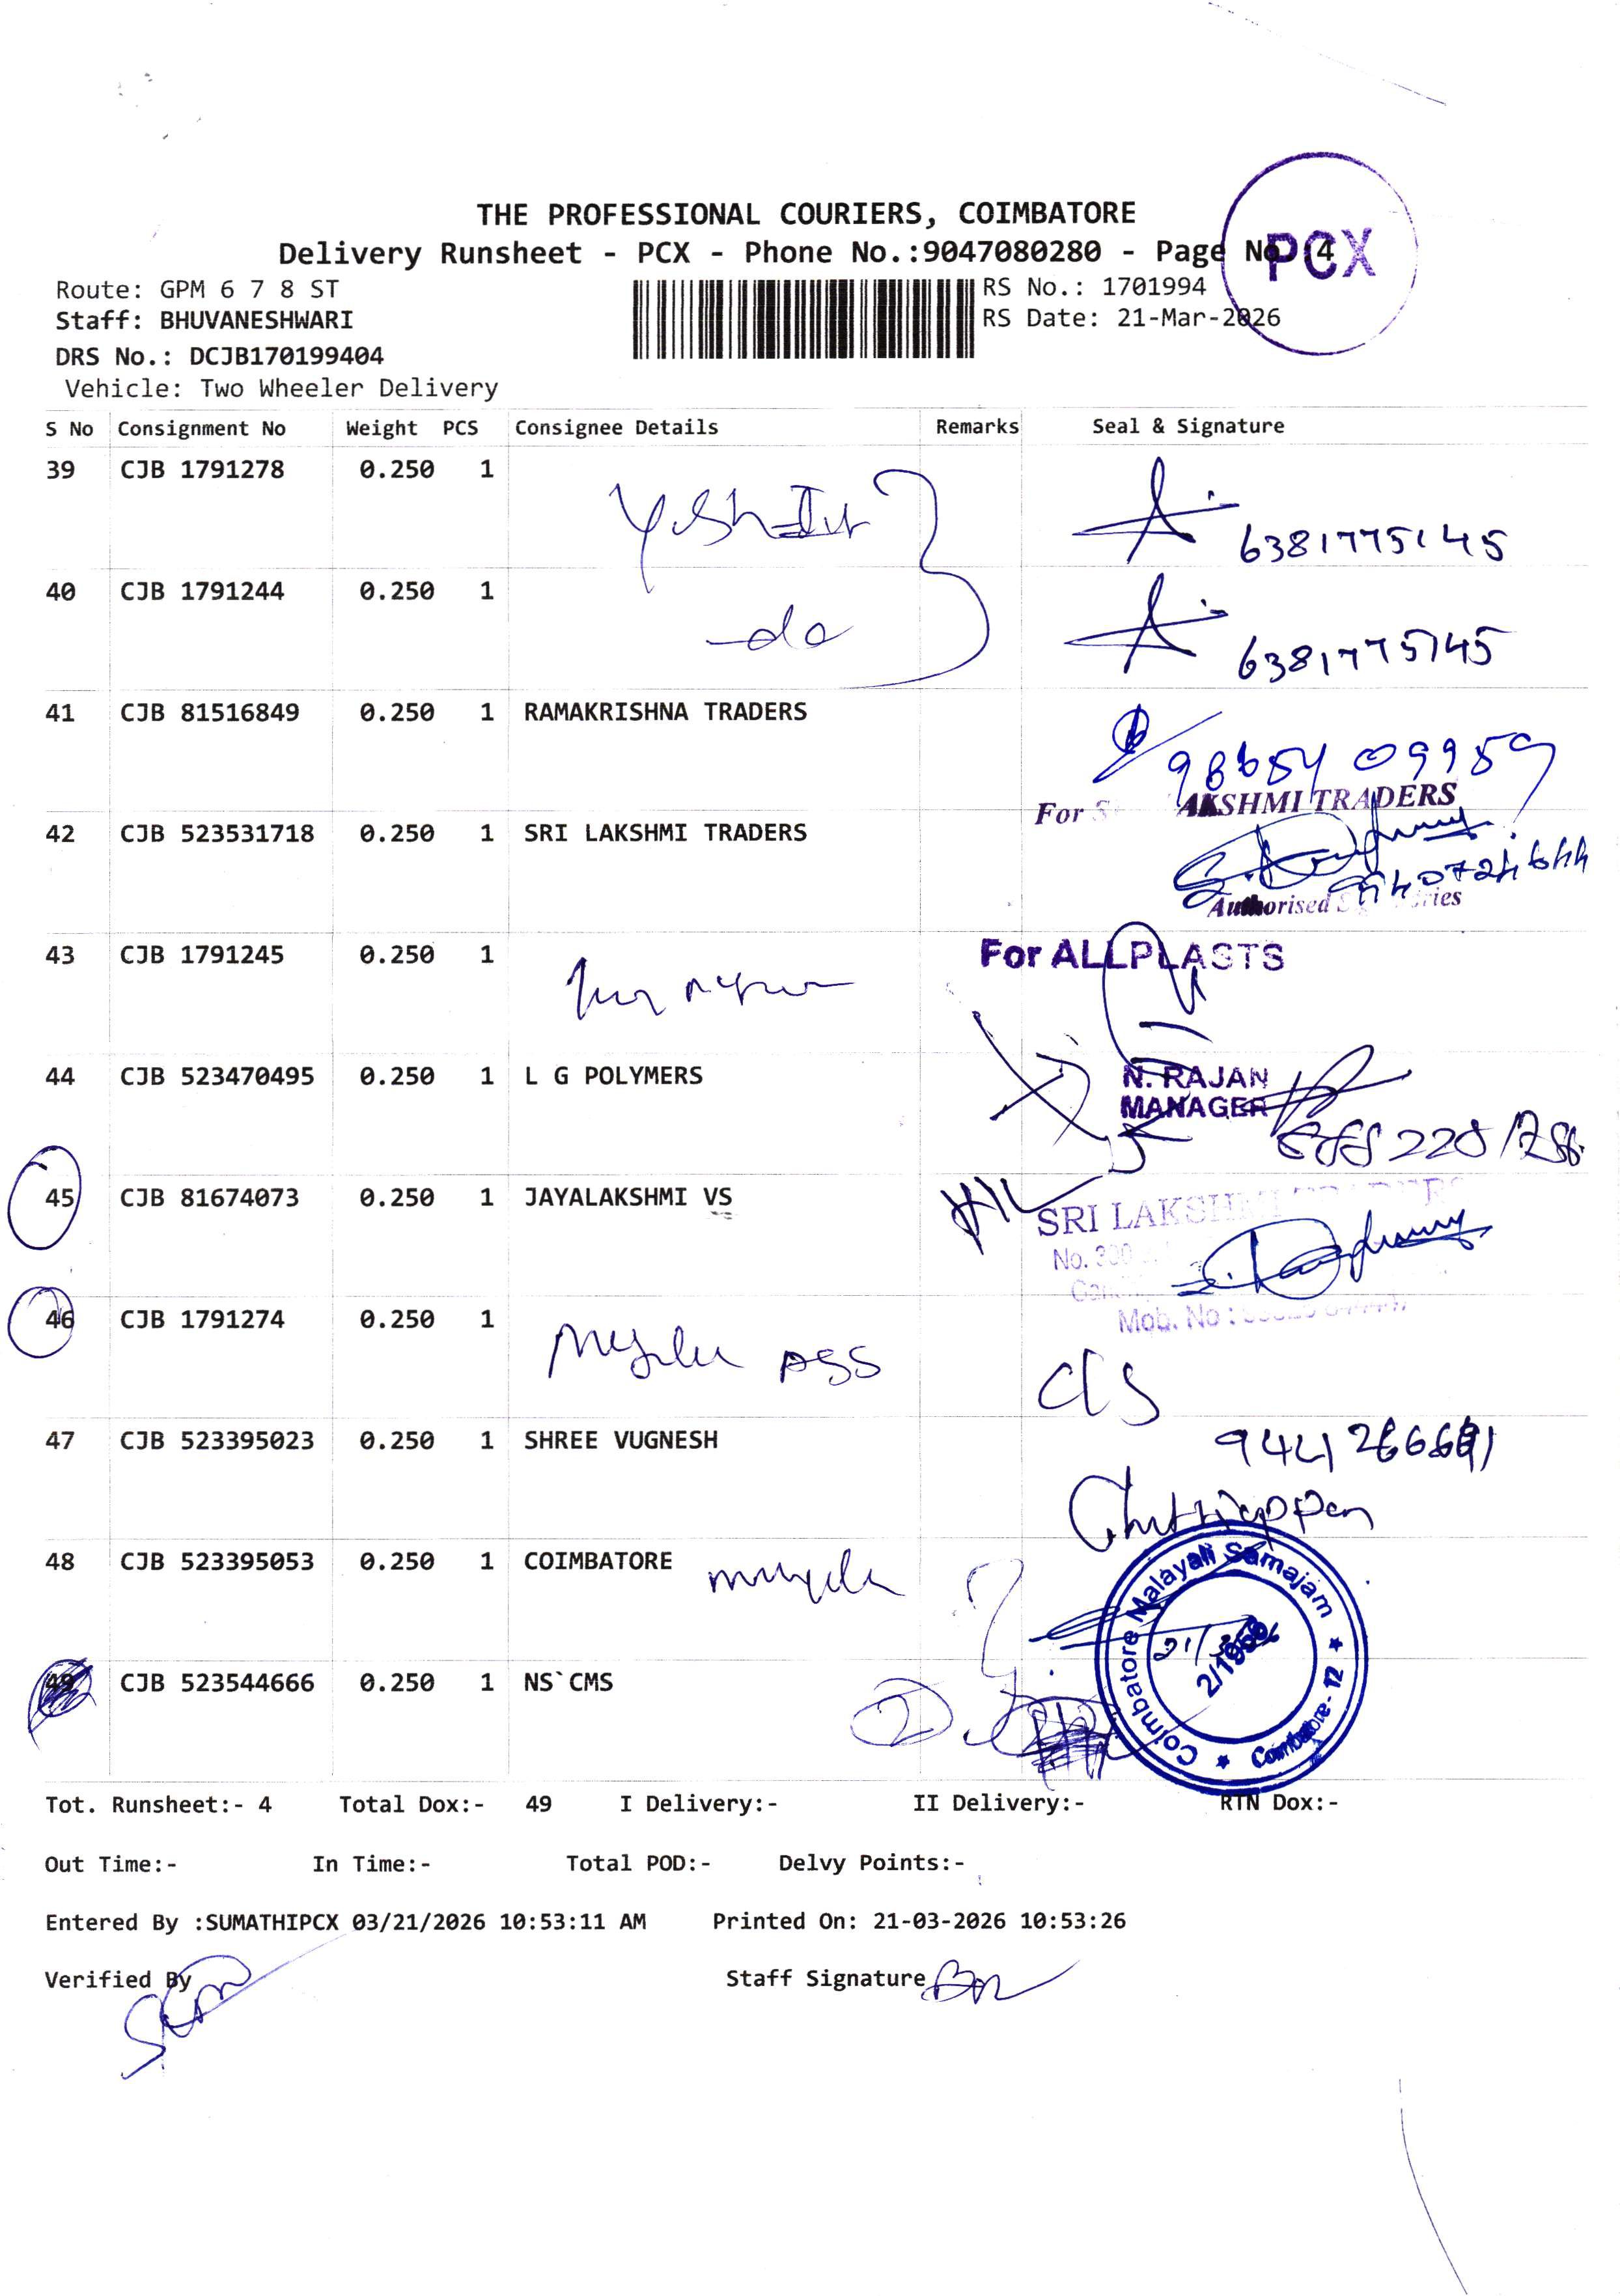 THE PROFESSIONAL COURIERS, COIMBATORE
Delivery Runsheet - PCX - Phone No.:9047080280 - Page No.:4
PCX
Route: GPM 6 7 8 ST
RS No.: 1701994
Staff: BHUVANESHWARI
RS Date: 21-Mar-2026
DRS No.: DCJB170199404
Vehicle: Two Wheeler Delivery
S No Consignment No Weight PCS Consignee Details Remarks Seal & Signature
39 CJB 1791278 0.250 1
6381775145
40 CJB 1791244 0.250 1
-do
6381775145
41 CJB 81516849 0.250 1 RAMAKRISHNA TRADERS
98654 09959
For S AKSHMI TRADERS
42 CJB 523531718 0.250 1 SRI LAKSHMI TRADERS
Authorised
43 CJB 1791245 0.250 1
For ALLPLASTS
44 CJB 523470495 0.250 1 L G POLYMERS
N. RAJAN
MANAGER
45 CJB 81674073 0.250 1 JAYALAKSHMI VS
SRI LAKSHMI
No.
Mob. No :
46 CJB 1791274 0.250 1
47 CJB 523395023 0.250 1 SHREE VUGNESH
48 CJB 523395053 0.250 1 COIMBATORE
Coimbatore Malayali Samajam
2/1958
Coimbatore - 12
49 CJB 523544666 0.250 1 NS`CMS
Tot. Runsheet:- 4 Total Dox:- 49 I Delivery:- II Delivery:- RTN Dox:-
Out Time:- In Time:- Total POD:- Delvy Points:-
Entered By :SUMATHIPCX 03/21/2026 10:53:11 AM Printed On: 21-03-2026 10:53:26
Verified By Staff Signature